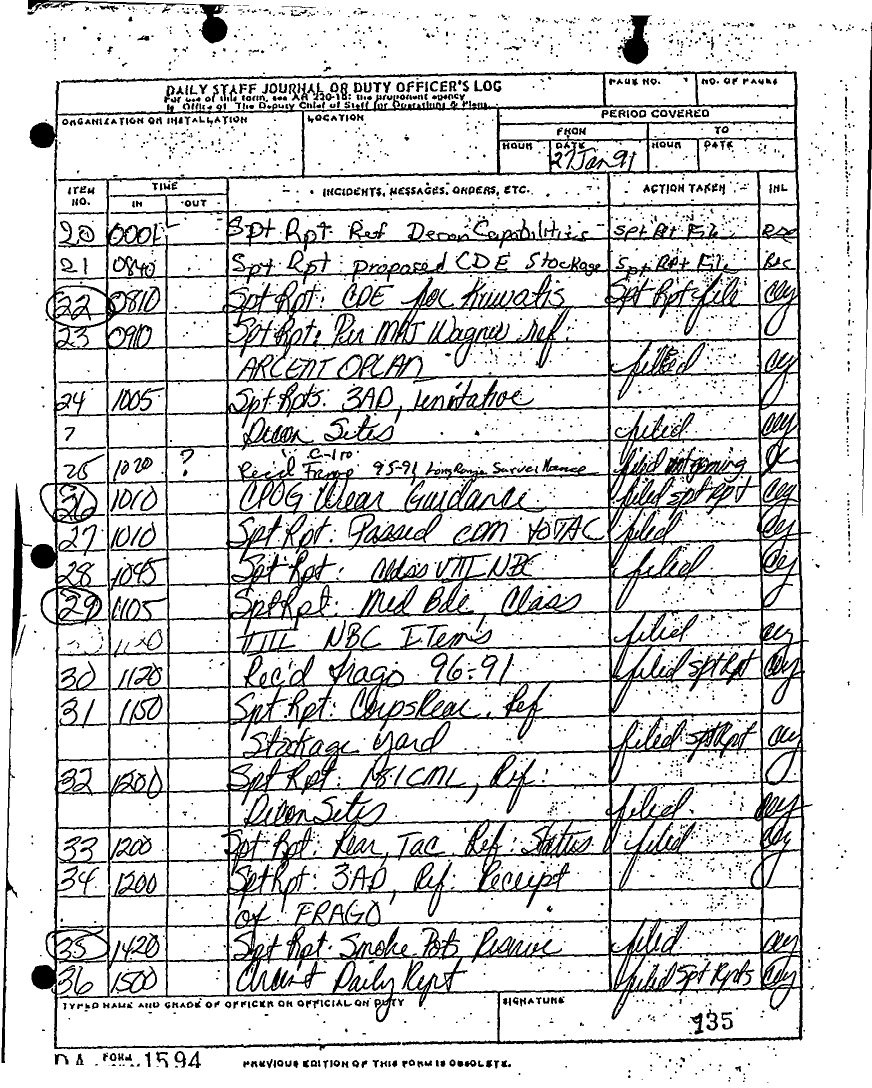 DAILY STAFF JOURNAL OR DUTY OFFICER'S LOG
For use of this form, see AR 220-15; the proponent agency
is Office of The Deputy Chief of Staff for Operations & Plans.
PAGE NO.
NO. OF PAGES
ORGANIZATION OR INSTALLATION
LOCATION
PERIOD COVERED
FROM
TO
HOUR
DATE
HOUR
DATE
27 Jan 91
ITEM NO.
TIME
IN
OUT
INCIDENTS, MESSAGES, ORDERS, ETC.
ACTION TAKEN
INL
20 0001 Spt Rpt Ref Decon Capabilities Spt Rpt File
21 0840 Spt Rpt: proposed CDE Stockage Spt Rpt File
22 0810 Spt Rpt: CDE for Kuwatis Spt Rpt file
23 0910 Spt Rpt: Per MAJ Wagner ref:
ARCENT OPLAN filed
24 1005 Spt Rpts: 3AD, tentative
? Decon Sites filed
25 1020 ? Rec'd Frago 95-91 Long Range Surveillance filed
26 1010 CPOG Wear Guidance filed spt Rpt
27 1010 Spt Rpt: Passed com to TAC filed
28 1045 Spt Rpt: VIII NBC filed
29 1105 Spt Rpt: Med Bde, Class
VIII NBC ITems filed
30 1120 Rec'd frago 96-91 filed spt Rpt
31 1150 Spt Rpt: Corps Rear, Ref
Stockage yard filed spt Rpt
32 1200 Spt Rpt: CML, Ref:
Decon Sites filed
33 1200 Spt Rpt: Rear, Tac Ref: Status filed
34 1200 Spt Rpt: 3AD, Ref: Receipt
of FRAGO
35 1420 Spt Rpt: Smoke Pots Reserve filed
36 1500 Daily Rept filed Spt Rpts
TYPED NAME AND GRADE OF OFFICER OR OFFICIAL ON DUTY
SIGNATURE
135
DA FORM 1594
PREVIOUS EDITION OF THIS FORM IS OBSOLETE.